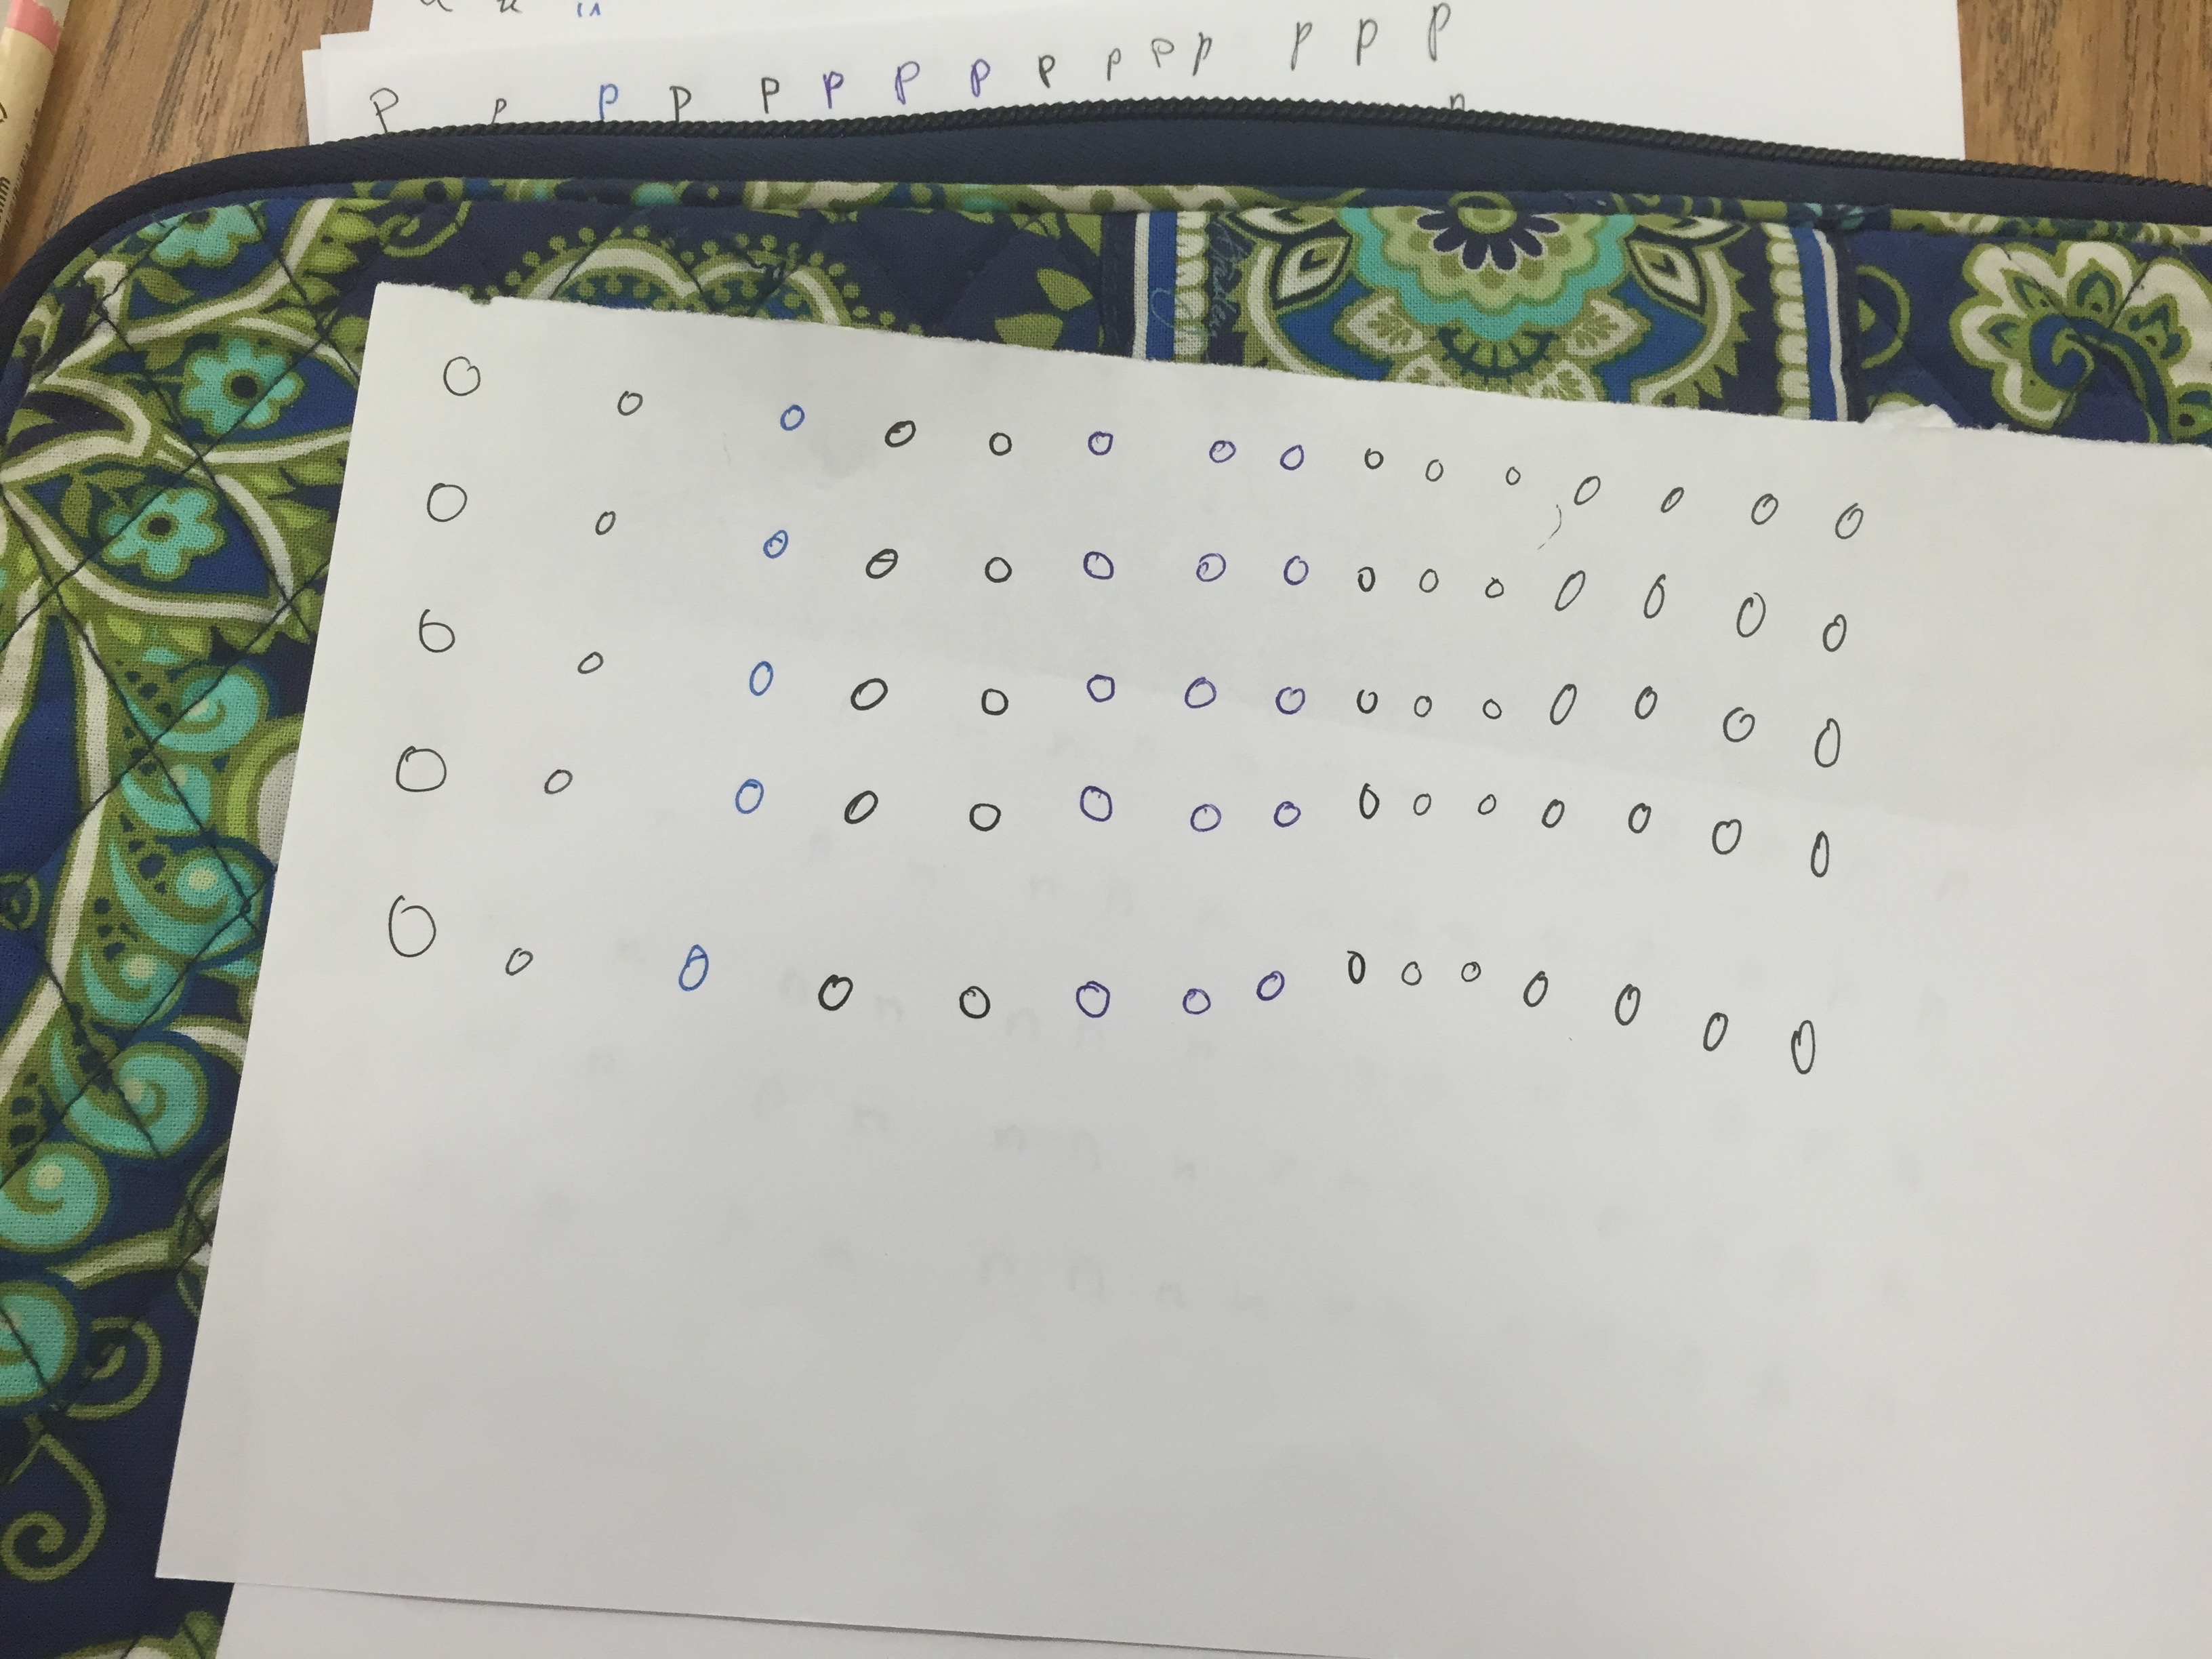 p p p p p p p p p p p p p p p
n
o o o o o o o o o o o o o o o
o o o o o o o o o o o o o o o
o o o o o o o o o o o o o o o
o o o o o o o o o o o o o o o
o o o o o o o o o o o o o o o